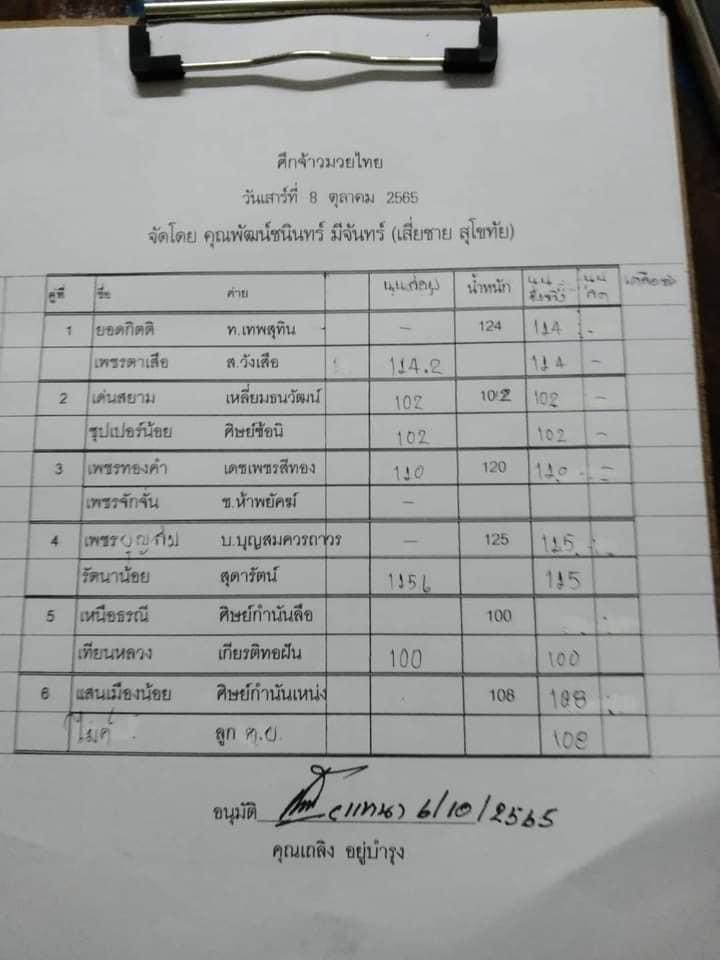 ศึกจ้าวมวยไทย
วันเสาร์ที่ 8 ตุลาคม 2565
จัดโดย คุณพัฒน์ชนินทร์ มีจันทร์ (เสี่ยชาย สุโขทัย)
คู่ที่ ชื่อ ค่าย น้ำหนัก
1 ยอดกิตติ ท.เทพสุทิน - 124 124 -
เพชรตาเสือ ส.วังเสือ 124.2 124 -
2 เด่นสยาม เหลี่ยมธนวัฒน์ 102 102 102 -
ซุปเปอร์น้อย ศิษย์ซ้อนิ 102 102 -
3 เพชรทองคำ เดชเพชรสีทอง 120 120 120 -
เพชรจักจั่น ช.ห้าพยัคฆ์ -
4 เพชรบุญสม บ.บุญสมควรถาวร - 125 125
รัตนาน้อย สุดารัตน์ 125
5 เหนือธรณี ศิษย์กำนันลือ 100
เทียนหลวง เกียรติทอฝัน 100 100
6 แสนเมืองน้อย ศิษย์กำนันเหน่ง 108 108
ลูก ต.ย. 108
อนุมัติ (แทน) 6/10/2565
คุณเถลิง อยู่บำรุง